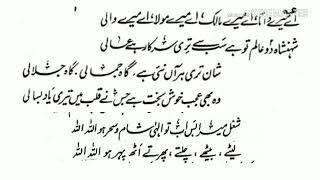 اے میرے داتا، اے میرے مالک، اے میرے مولا، اے میرے والی
شہنشاہِ دو عالم تو ہے سب سے تری سرکار ہے عالی
شان تری ہر آں نئی ہے گاہ جمالی گاہ جلالی
وہ بھی عجب خوش بخت ہے جس نے قلب میں تیری یاد بسالی
شغل میرا بس اب تو الٰہی شام و سحر ہو اللہ اللہ
لیٹے، بیٹھے، چلتے، پھرتے آٹھ پہر ہو اللہ اللہ